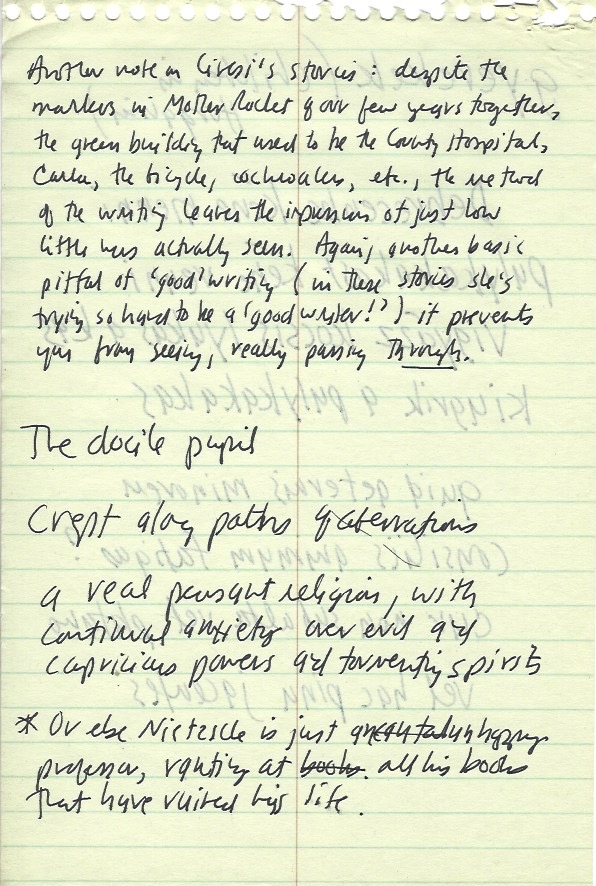 Another note on Givesi's stories: despite the
markers in Mother Rocket of our few years together,
the green building that used to be the County Hospital,
Carla, the bicycle, cockroaches, etc., the method
of the writing leaves the impression of just how
little was actually seen. Again, another basic
pitfall of 'good' writing (in these stories she's
trying so hard to be a 'good writer!') it prevents
you from seeing, really passing through.
The docile pupil
Crept along paths of
a real peasant religion, with
continual anxiety over evil and
capricious powers and tormenting spirits
* Or else Nietzsche is just unhappy
professor, ranting at books. all his books
that have ruined his life.